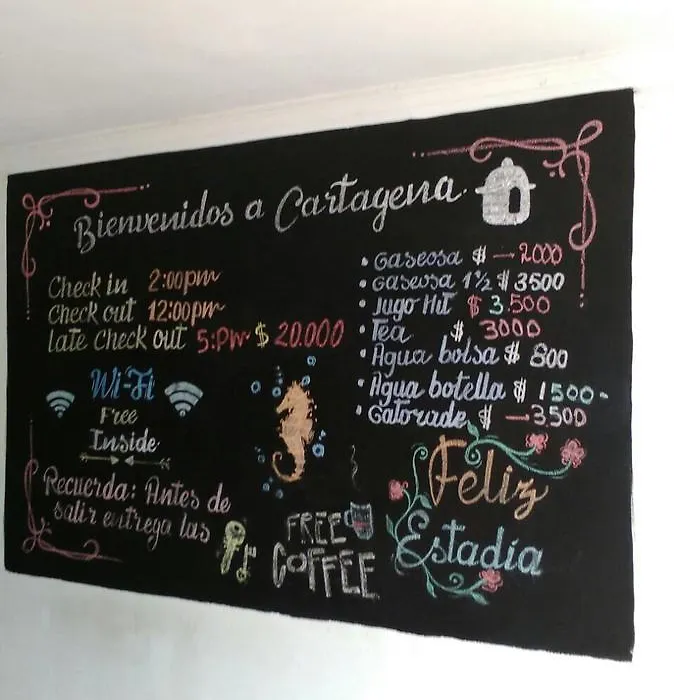 Bienvenidos a Cartagena
Check in 2:00pm
Check out 12:00pm
Late Check out 5:pm $ 20.000
Wi-Fi
Free
Inside
Recuerda: Antes de
salir entrega las
• Gaseosa $ — 2000
• Gaseosa 1½ $ 3500
• Jugo Hit $ 3.500
• Tea $ 3000
• Agua bolsa $ 800
• Agua botella $ 1500-
• Gatorade $ — 3,500
FREE
COFFEE
Feliz
Estadía